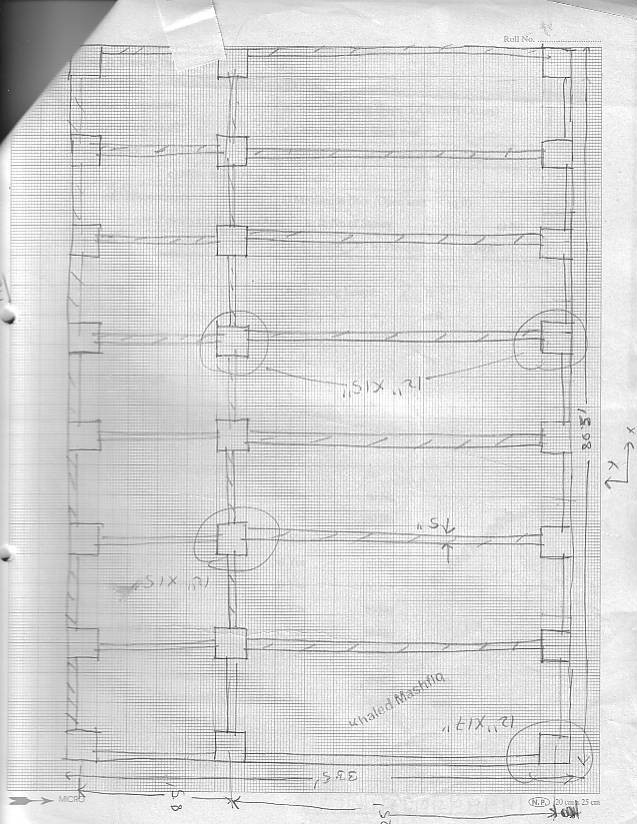 Roll No.
12" X15"
80.5'
x
5"
12" X15
Khaled Mashfiq
12"X17"
33.5'
MICRO
N.P. 20 cm x 25 cm